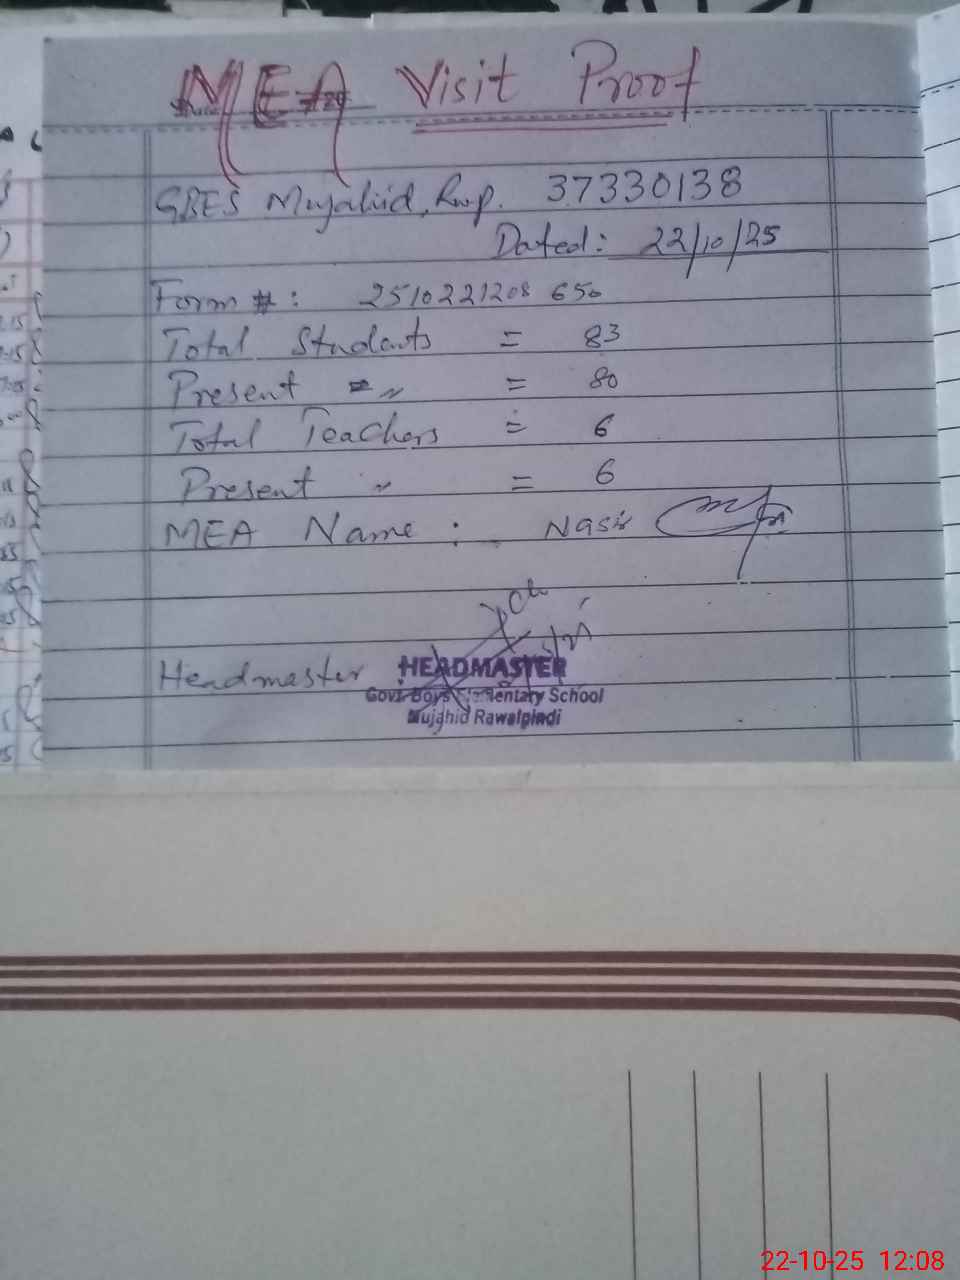 MEA Visit Proof
GBES Mujahid, Rwp. 37330138
Dated: 22/10/25
Form #: 2510221208 650
Total Students = 83
Present 〃 = 80
Total Teachers = 6
Present 〃 = 6
MEA Name: Nasir
Headmaster
HEADMASTER
Govt. Boys Elementary School
Mujahid Rawalpindi
22-10-25 12:08